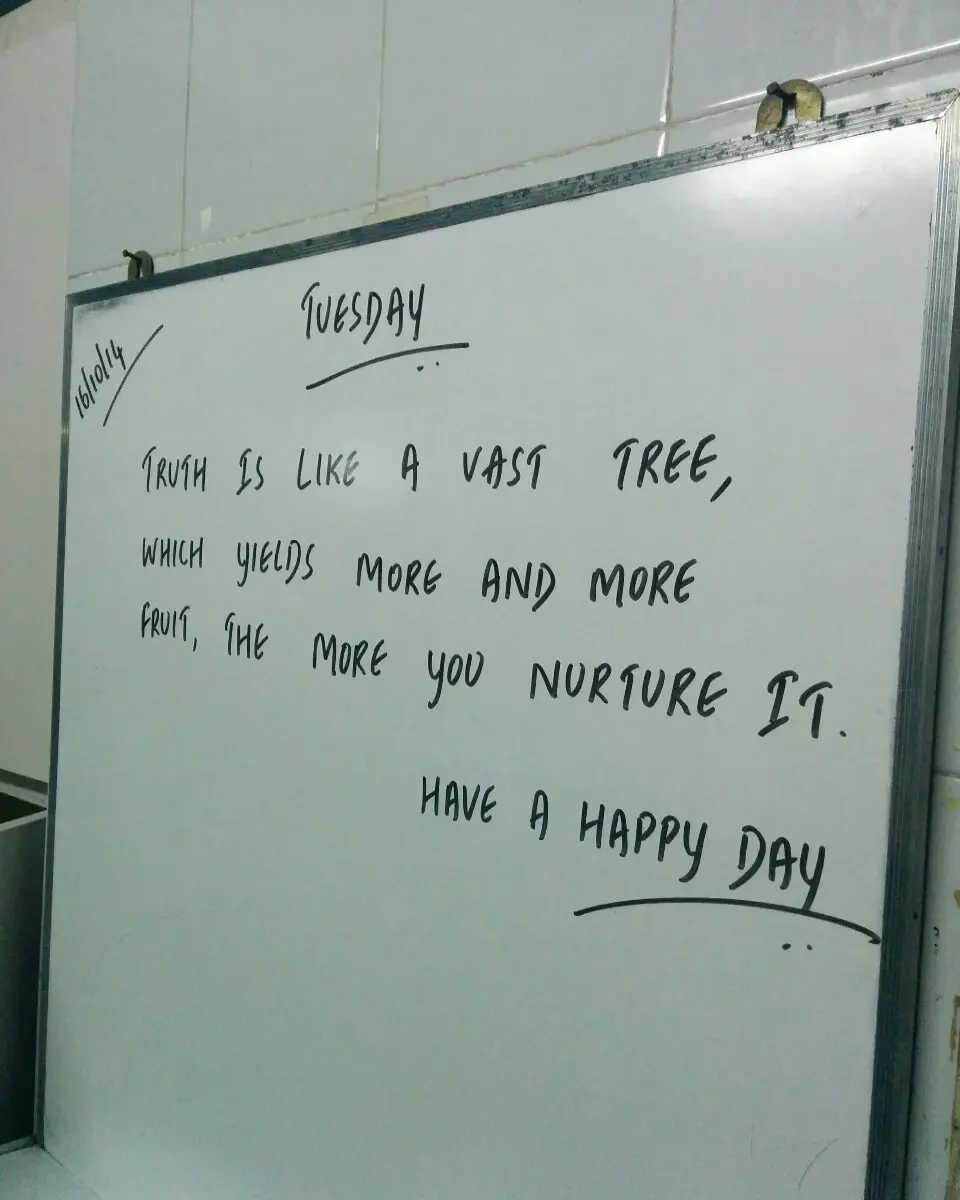 TUESDAY
16/10/14
TRUTH IS LIKE A VAST TREE,
WHICH YIELDS MORE AND MORE
FRUIT, THE MORE YOU NURTURE IT.
HAVE A HAPPY DAY